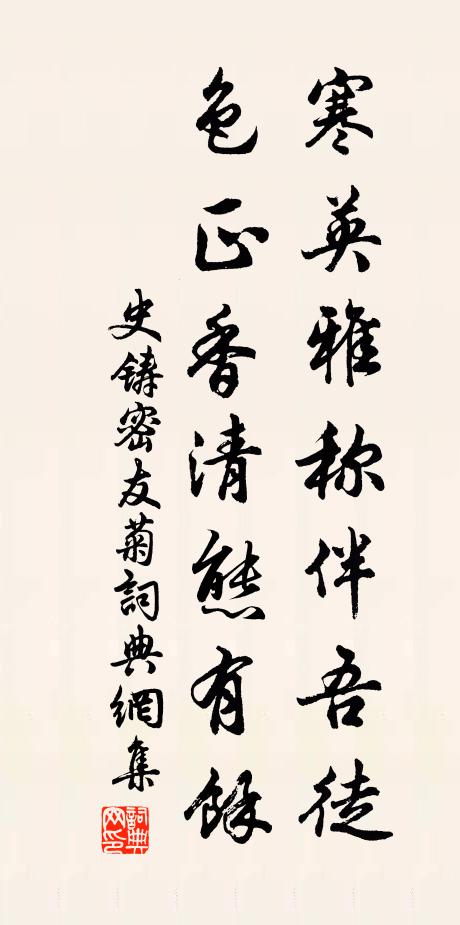 寒英雅称伴吾徒
色正香清態有餘
史鑄密友菊詞典網集
詞典網印